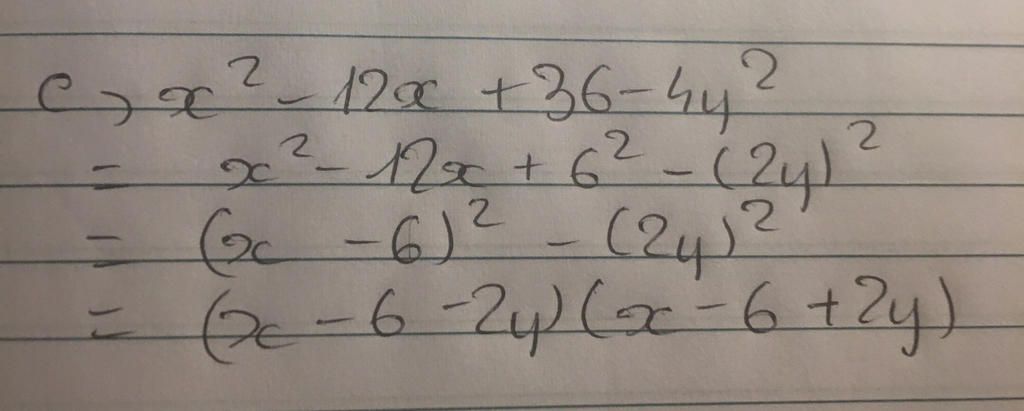 c, x² - 12x + 36 - 4y²
= x² - 12x + 6² - (2y)²
= (x - 6)² - (2y)²
= (x - 6 - 2y)(x - 6 + 2y)